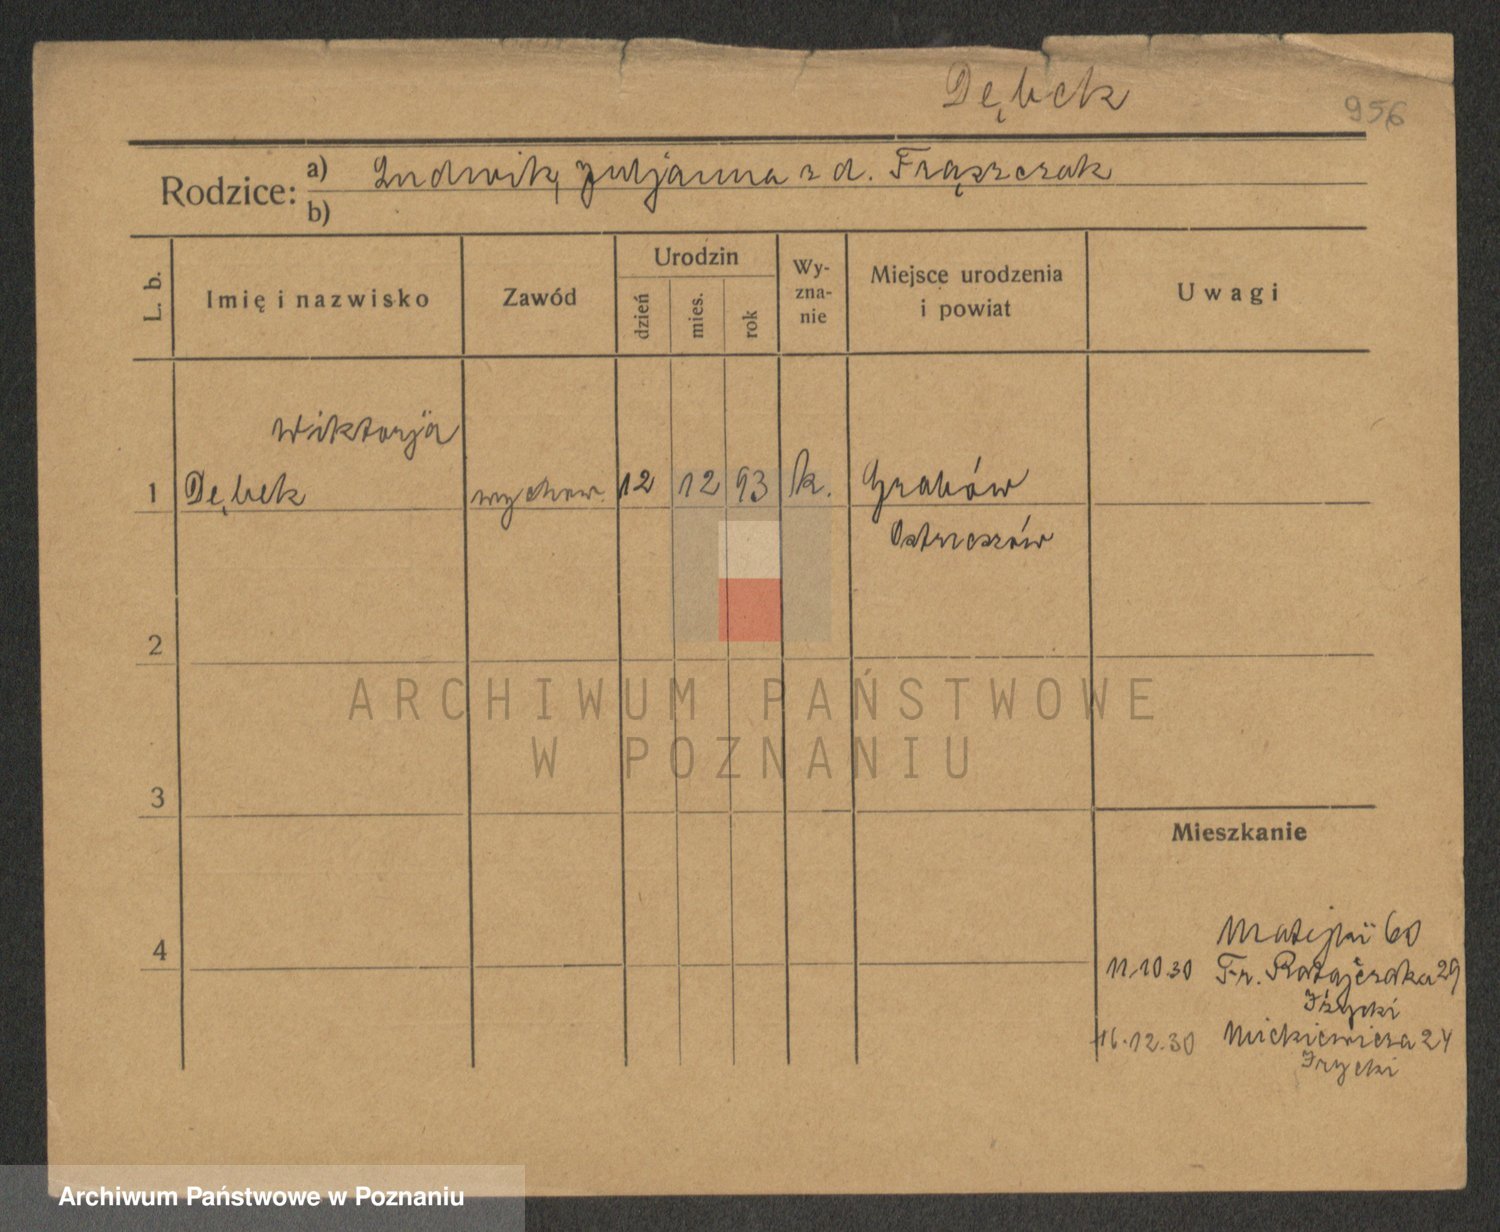 Dębek
956
Rodzice: a) Ludwik, Juljanna z d. Frąszczak
b)
L. b.
Imię i nazwisko
Zawód
Urodzin
dzień
mies.
rok
Wy-
zna-
nie
Miejsce urodzenia
i powiat
Uwagi
Wiktorja
1 Dębek wychow. 12 12 93 k. Grabów
Ostrzeszów
2
ARCHIWUM PAŃSTWOWE
W POZNANIU
3
Mieszkanie
4
Matejki 60
11.10.30 Fr. Ratajczaka 29
16.12.30 Mickiewicza 24
Archiwum Państwowe w Poznaniu